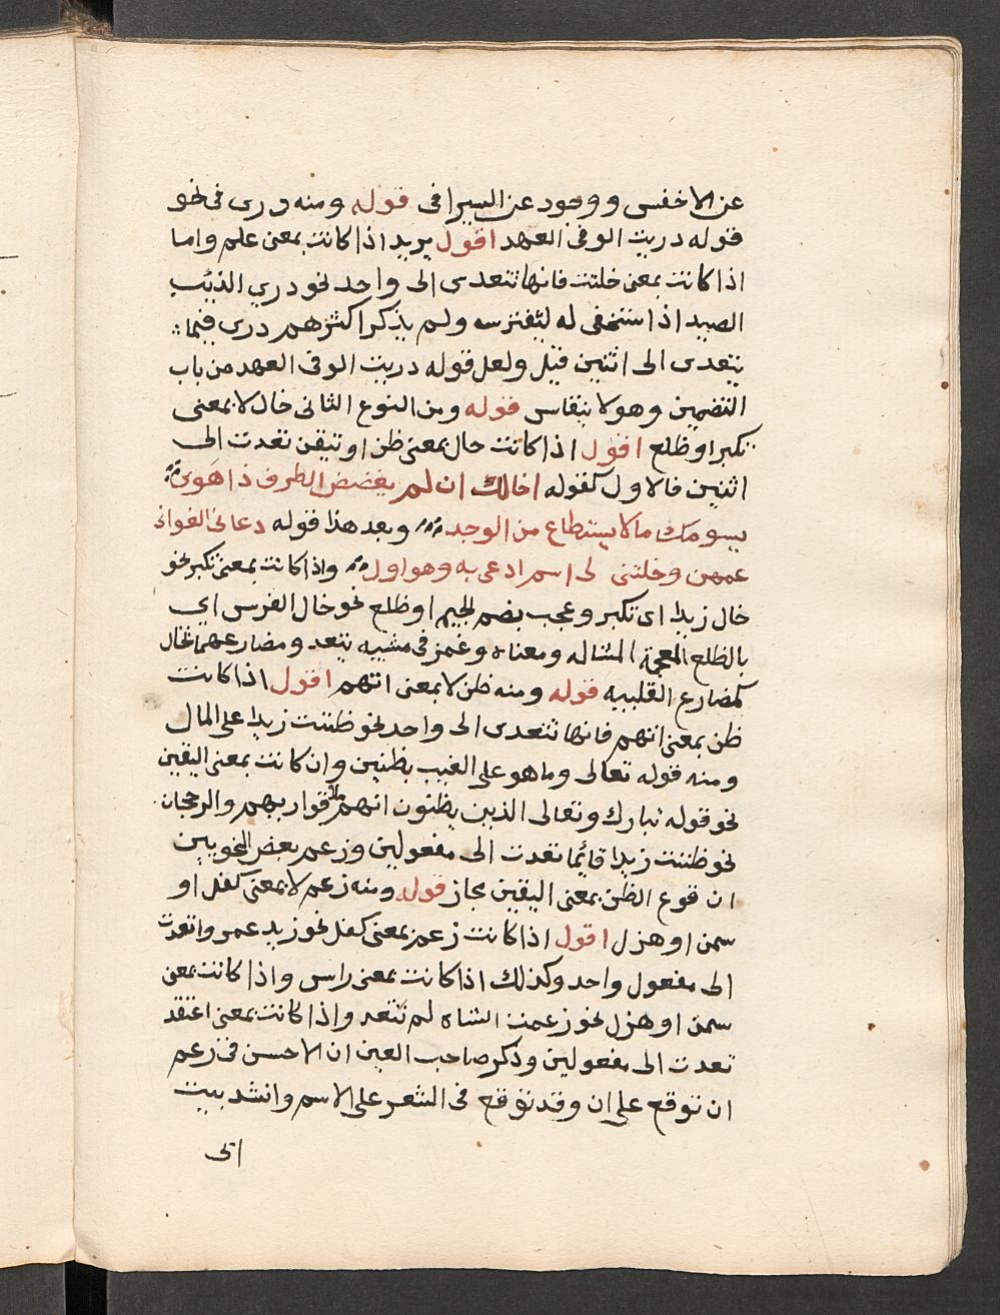 عن الاخفس ووجود عن السيرافى قوله ومنه درى فى نحو
قوله دريت الوفى العهد اقول يريد اذا كانت بمعنى علم واما
اذا كانت بمعنى خلتت فانها تتعدى الى واحد نحو دري الذئب
الصيد اذا استخفى له ليفترسه ولم يذكر اكثرهم درى فيما
يتعدى الى اثنين قيل ولعل قوله دريت الوفى العهد من باب
التضمين وهو لا ينقاس قوله ومن النوع الثانى خال لا بمعنى
تكبر او ظلع اقول اذا كانت خال بمعنى ظن او تيقن تعدت الى
اثنين فالاول كقوله اخالك ان لم يغضض الطرف ذا هوى
يسومك ما لا يستطاع من الوجد وبعد هذا قوله دعانى الغوانى
عمهن وخلتنى لى اسم ادعى به وهو اول واذا كانت بمعنى تكبر نحو
خال زيد اى تكبر وعجب بضم الجيم او ظلع نحو خال الفرس اي
بالظلع المعجمة المشاله ومعناه وغمز فى مشيه يتعد ومضارعهما تخال
كمضارع القلبيه قوله ومنه ظن لا بمعنى اتهم اقول اذا كانت
ظن بمعنى اتهم فانها تتعدى الى واحد نحو ظننت زيدا على المال
ومنه قوله تعالى وما هو على الغيب بظنين وان كانت بمعنى اليقين
نحو قوله تبارك وتعالى الذين يظنون انهم ملاقوا ربهم والرجحان
نحو ظننت زيدا قائما تعدت الى مفعولين وزعم بعض النحويين
ان قوع الظن بمعنى اليقين مجاز قوله ومنه زعم لا بمعنى كفل او
سمن او هزل اقول اذا كانت زعم بمعنى كفل نحو زيد عمروا تعدت
الى مفعول واحد وكذلك اذا كانت بمعنى راس واذا كانت بمعنى
سمن او هزل نحو زعمت الشاه لم تتعد واذا كانت بمعنى اعتقد
تعدت الى مفعولين وذكر صاحب العين ان الاحسن فى زعم
ان توقع على ان وقد توقع فى الشعر على الاسم وانشد بيت
ابى